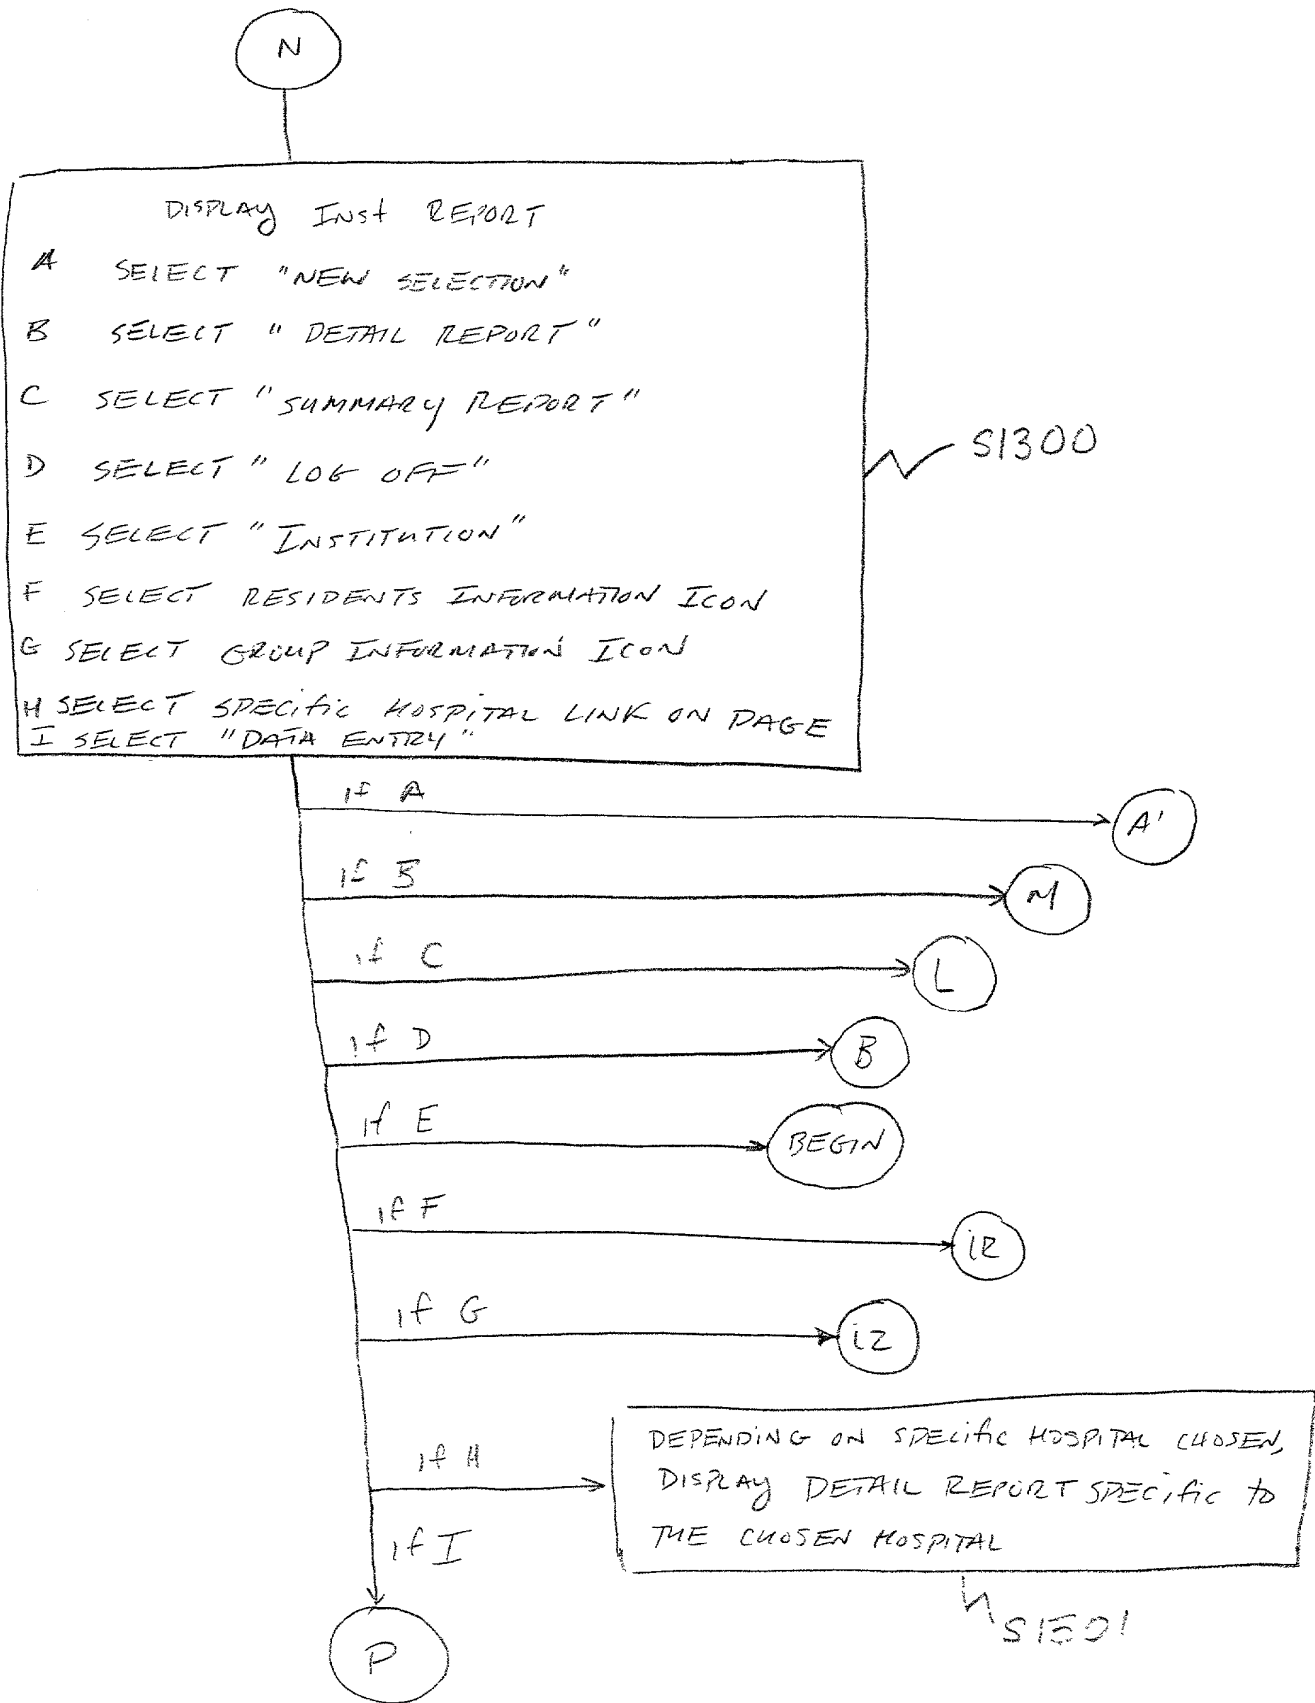 N
DISPLAY INST REPORT
A SELECT "NEW SELECTION"
B SELECT "DETAIL REPORT"
C SELECT "SUMMARY REPORT"
D SELECT "LOG OFF"
E SELECT "INSTITUTION"
F SELECT RESIDENTS INFORMATION ICON
G SELECT GROUP INFORMATION ICON
H SELECT SPECIFIC HOSPITAL LINK ON PAGE
I SELECT "DATA ENTRY"
S1300
if A
A'
if B
M
if C
L
if D
B
if E
BEGIN
if F
iR
if G
iz
if H
DEPENDING ON SPECIFIC HOSPITAL CHOSEN,
DISPLAY DETAIL REPORT SPECIFIC to
THE CHOSEN HOSPITAL
if I
P